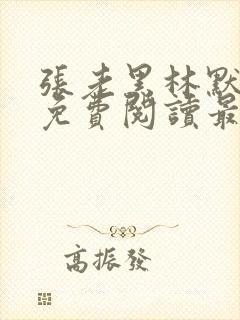 張老黑林默
免費閱讀最
高振發